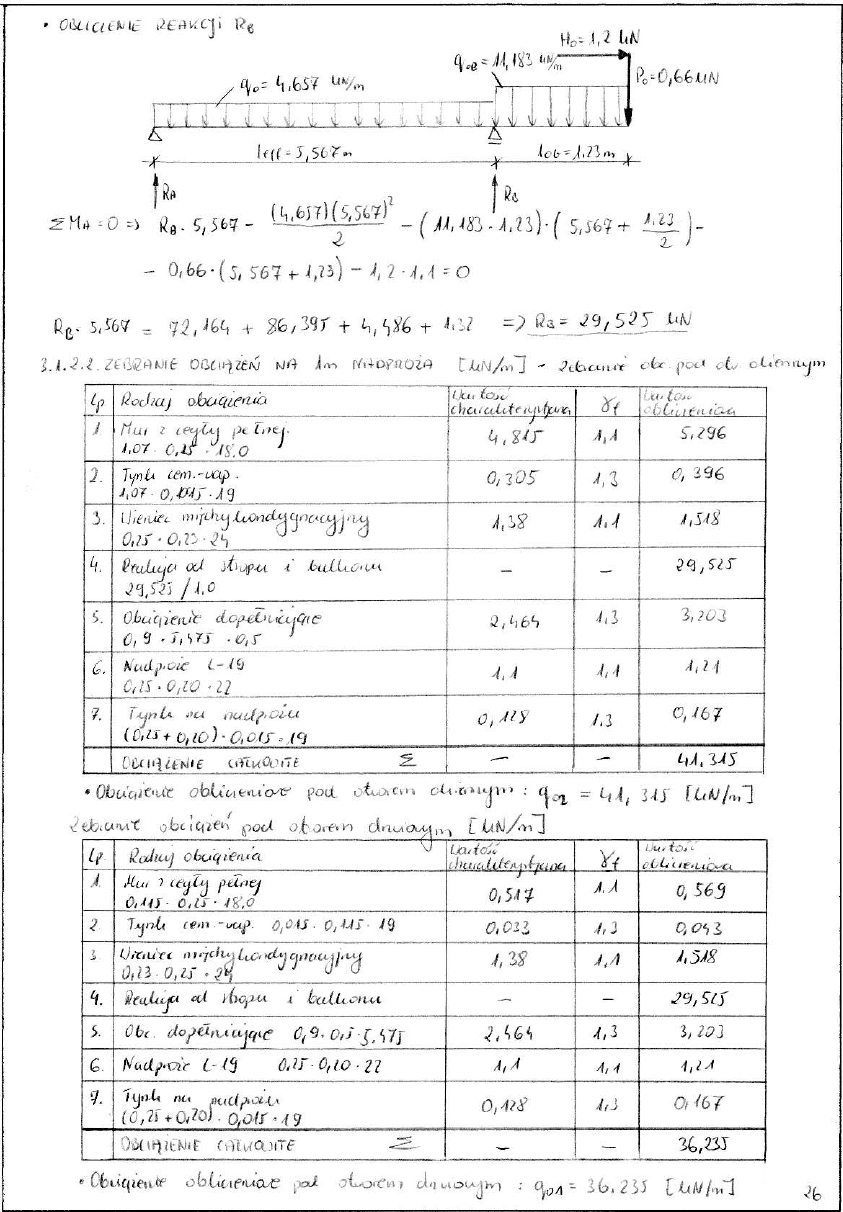 • OBLICZENIE REAKCJI RB
H0=1,2 kN
q0B=11,183 kN/m
P0=0,66kN
q0=4,657 kN/m
leff=5,567m
l0B=1,23m
RA
RB
ΣMA=0 => RB·5,567 - (4,657)(5,567)²/2 - (11,183·1,23)·(5,567+ 1,23/2) -
- 0,66·(5,567+1,23) - 1,2·1,1=0
RB·5,567 = 72,164 + 86,395 + 4,486 + 1,32 => RB= 29,525 kN
3.1.2.2. ZEBRANIE OBCIĄŻEŃ NA 1m NADPROŻA [kN/m] - Zebranie obc. pod otw okiennym
Lp Rodzaj obciążenia Wartość charakterystyczna γf Wartość obliczeniowa
1. Mur z cegły pełnej. 4,815 1,1 5,296
1,07 · 0,25 · 18,0
2. Tynk cem.-wap. 0,305 1,3 0,396
1,07·0,015·19
3. Wieniec międzykondygnacyjny 1,38 1,1 1,518
0,25 · 0,23·24
4. Reakcja od stropu i balkonu – – 29,525
29,525 /1,0
5. Obciążenie dopełniające 2,464 1,3 3,203
0,9 · 5,475 · 0,5
6. Nadproże L-19 1,1 1,1 1,21
0,25 · 0,20 · 22
7. Tynk na nadprożu 0,128 1.3 0,167
(0,25+0,20)·0,015·19
OBCIĄŻENIE CAŁKOWITE Σ – – 41,315
• Obciążenie obliczeniowe pod otworem okiennym : q02 = 41,315 [kN/m]
Zebranie obciążeń pod otworem drzwiowym [kN/m]
Lp. Rodzaj obciążenia Wartość charakterystyczna γf Wartość obliczeniowa
1. Mur z cegły pełnej 0,517 1.1 0,569
0,115 · 0,25 · 18,0
2. Tynk cem.-wap. 0,015 · 0,115 · 19 0,033 1,3 0,043
3. Wieniec międzykondygnacyjny 1,38 1,1 1,518
0,23·0,25·24
4. Reakcja od stropu i balkonu – – 29,525
5. Obc. dopełniające 0,9·0,5·5,475 2,464 1,3 3,203
6. Nadproże L-19 0,25·0,20·22 1,1 1,1 1,21
7. Tynk na nadprożu 0,128 1,3 0,167
(0,25+0,20)·0,015·19
OBCIĄŻENIE CAŁKOWITE Σ – – 36,235
• Obciążenie obliczeniowe pod otworem drzwiowym : q01= 36.235 [kN/m]
26